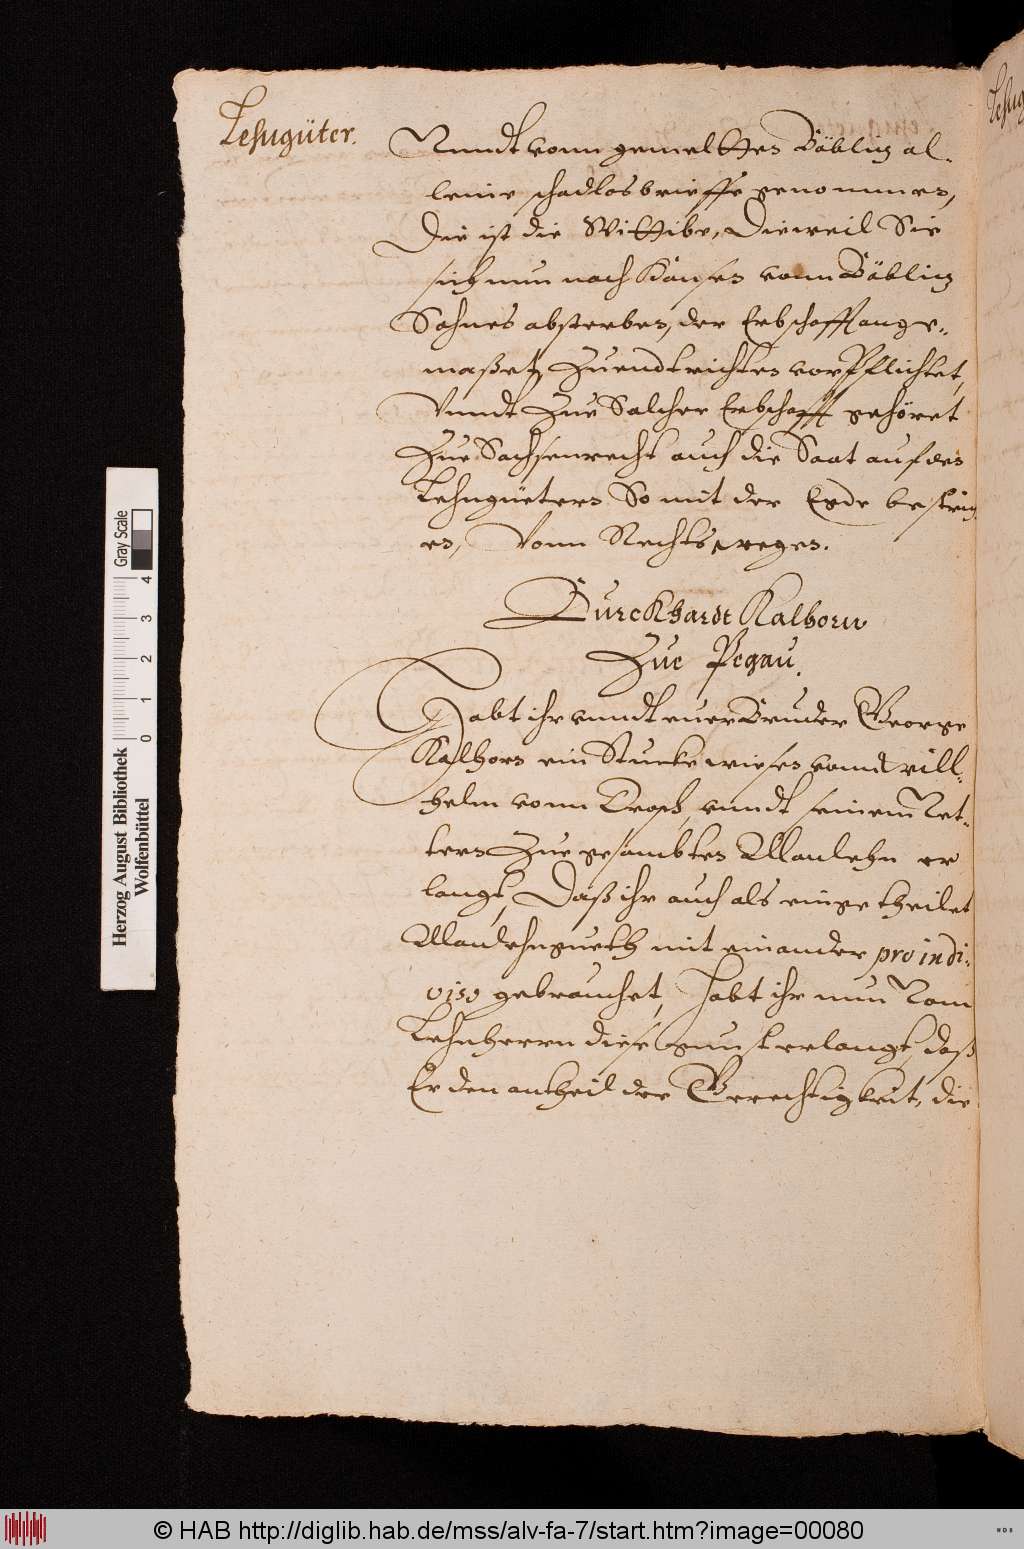 Lehngüter.
Vnndt vonn gemeltten Böbling al-
leine schadlosbrieffe genommen,
Die ist die Wittibe, Dieweil Sie
sich nun nach Hansen vonn Böbling
Sohnes absterben, der Erbschafft ange-
maßet, Zuendtrichten vorpflichtet,
Vnndt Zue Solcher Erbschafft gehöret
Zue Sachsenrecht auch die Saat auf den
Lehngüetern So mit der Egde bestrich
en, Vonn Rechts wegen.
Burckhardt Kalhorn
Zue Pegau.
Habt ihr vnndt euer Bruder George
Kalhorn ein Stucke wiesen vonn Will-
helm vonn vnndt seinem Vet-
tern Zue gesambten Manlehn er
langt, Daß ihr auch als eingetheilet
Manlehngueth mit einander pro indi-
viso gebrauchet, Habt ihr nun Vom
Lehnherrn diese gunst erlangt, daß
Er den antheil der Gerechtigkeit, die
Herzog August Bibliothek
Wolfenbüttel
0 1 2 3 4
Gray Scale
© HAB http://diglib.hab.de/mss/alv-fa-7/start.htm?image=00080